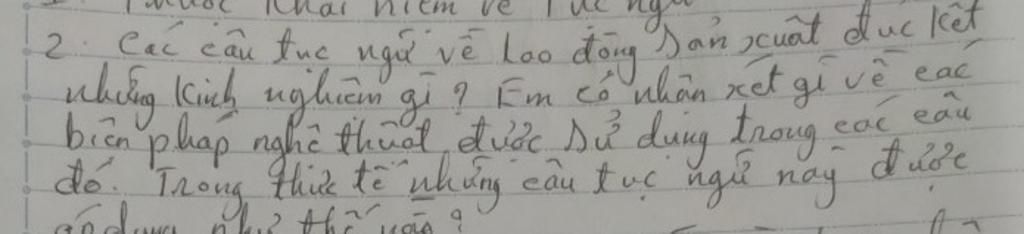 thuộc khái niệm về tục ngữ
2. Các câu tục ngữ về lao động sản xuất đúc kết
những kinh nghiệm gì? Em có nhận xét gì về các
biện pháp nghệ thuật được sử dụng trong các câu
đó. Trong thực tế những câu tục ngữ này được
áp dụng như thế nào?